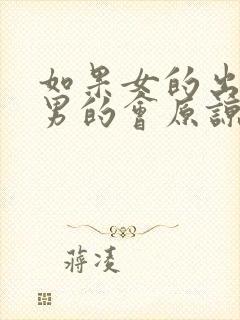 如果女的出
男的會原諒
蔣凌